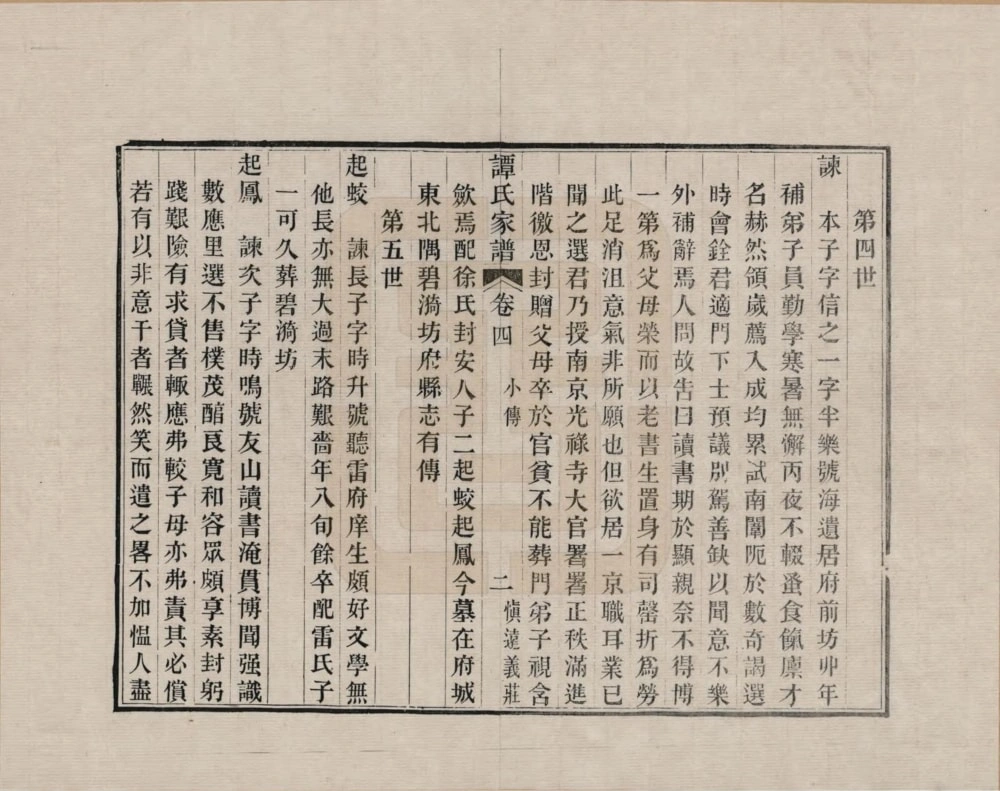 第四世
諫　本子字信之一字半樂號海遺居府前坊丱年
補弟子員勤學寒暑無懈丙夜不輟蚤食餼廩才
名赫然領歲薦入成均累試南闈阨於數奇謁選
時會銓君適門下士預議別駕善缺以聞意不樂
外補辭焉人問故吿曰讀書期於顯親奈不得博
一第爲父母榮而以老書生置身有司罄折爲勞
此足消沮意氣非所願也但欲居一京職耳業已
聞之選君乃授南京光祿寺大官署署正秩滿進
階徼恩封贈父母卒於官貧不能葬門弟子視含
譚氏家譜　卷四　小傳　二　愼遠義莊
斂焉配徐氏封安人子二起蛟起鳳今墓在府城
東北隅碧漪坊府縣志有傳
第五世
起蛟　諫長子字時升號聽雷府庠生頗好文學無
他長亦無大過末路艱嗇年八旬餘卒配雷氏子
一可久葬碧漪坊
起鳳　諫次子字時鳴號友山讀書淹貫博聞强識
數應里選不售樸茂醕良寬和容眾頗享素封躬
踐艱險有求貸者輒應弗較子母亦弗責其必償
若有以非意干者囅然笑而遣之畧不加慍人盡